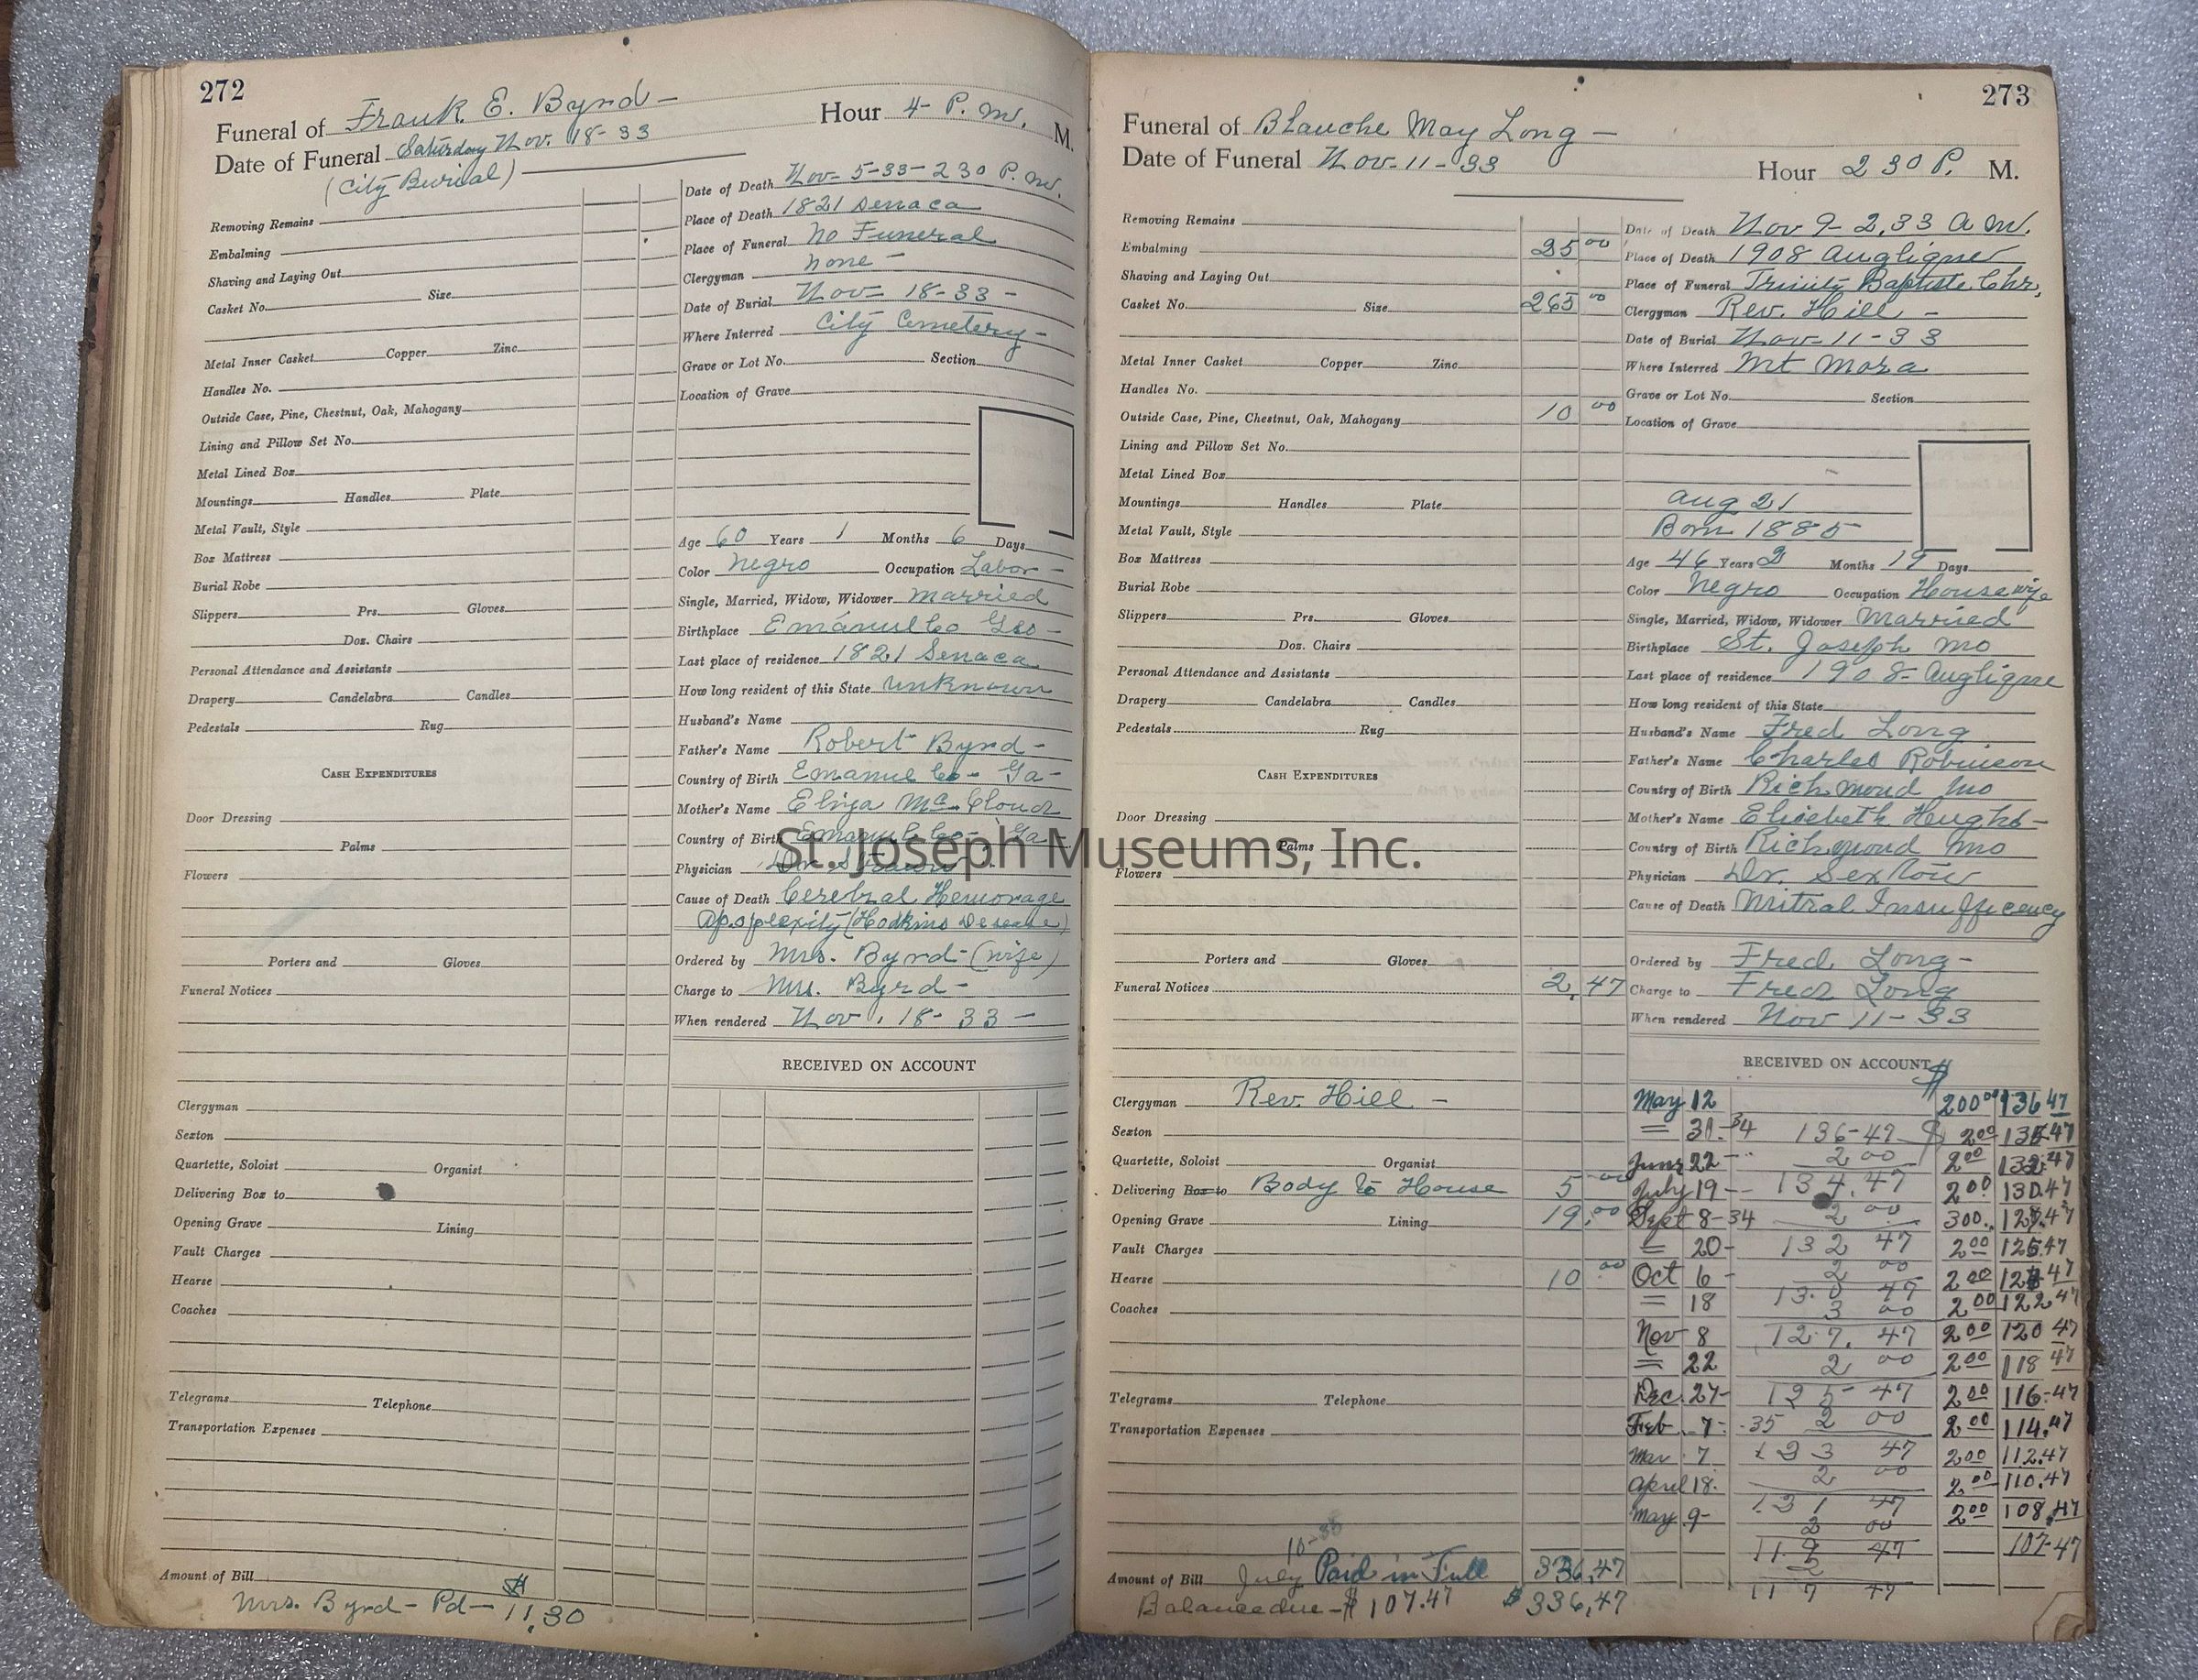 272
Funeral of Frank E. Byrd –
Hour 4- P. M. M.
Date of Funeral Saturday Nov. 18-33
(City Burial)
Removing Remains
Embalming
Shaving and Laying Out
Casket No. Size
Metal Inner Casket Copper Zinc
Handles No.
Outside Case, Pine, Chestnut, Oak, Mahogany
Lining and Pillow Set No.
Metal Lined Box
Mountings Handles Plate
Metal Vault, Style
Box Mattress
Burial Robe
Slippers Prs. Gloves
Doz. Chairs
Personal Attendance and Assistants
Drapery Candelabra Candles
Pedestals Rug
CASH EXPENDITURES
Door Dressing
Palms
Flowers
Porters and Gloves
Funeral Notices
Clergyman
Sexton
Quartette, Soloist Organist
Delivering Box to
Opening Grave Lining
Vault Charges
Hearse
Coaches
Telegrams Telephone
Transportation Expenses
Amount of Bill
Mrs. Byrd – Pd – $11.30
Date of Death Nov- 5-33-2 30 P. M.
Place of Death 1821 Senaca
Place of Funeral No Funeral
Clergyman None –
Date of Burial Nov- 18-33 –
Where Interred City Cemetery –
Grave or Lot No. Section
Location of Grave
Age 60 Years 1 Months 6 Days
Color Negro Occupation Labor –
Single, Married, Widow, Widower Married
Birthplace Emanuel Co Geo –
Last place of residence 1821 Senaca
How long resident of this State unknown
Husband's Name
Father's Name Robert Byrd –
Country of Birth Emanuel Co – Ga –
Mother's Name Eliza McCloud
Country of Birth Emanuel Co – Ga –
Physician Dr.
Cause of Death Cerebral Hemorage
Apoplexity (Hodkins Desease)
Ordered by Mrs. Byrd – (wife)
Charge to Mrs. Byrd –
When rendered Nov. 18- 33 –
RECEIVED ON ACCOUNT
273
Funeral of Blanche May Long –
Date of Funeral Nov-11-33
Hour 2 30 P. M.
Removing Remains
Embalming 25 00
Shaving and Laying Out
Casket No. Size 265 00
Metal Inner Casket Copper Zinc
Handles No.
Outside Case, Pine, Chestnut, Oak, Mahogany 10 00
Lining and Pillow Set No.
Metal Lined Box
Mountings Handles Plate
Metal Vault, Style
Box Mattress
Burial Robe
Slippers Prs. Gloves
Doz. Chairs
Personal Attendance and Assistants
Drapery Candelabra Candles
Pedestals Rug
CASH EXPENDITURES
Door Dressing
Palms
Flowers
Porters and Gloves
Funeral Notices 2,47
Clergyman Rev. Hill –
Sexton
Quartette, Soloist Organist
Delivering Box to Body to House 5 00
Opening Grave Lining 19.00
Vault Charges
Hearse 10 00
Coaches
Telegrams Telephone
Transportation Expenses
Amount of Bill July Paid in Full 336,47
Balance due – $107.47 $336,47
Date of Death Nov 9- 2,33 A M.
Place of Death 1908 Angligue
Place of Funeral Trinity Baptiste Chr,
Clergyman Rev. Hill –
Date of Burial Nov-11-33
Where Interred Mt Mora
Grave or Lot No. Section
Location of Grave
Aug 21
Born 1885
Age 46 Years 2 Months 19 Days
Color Negro Occupation Housewife
Single, Married, Widow, Widower Married
Birthplace St. Joseph Mo
Last place of residence 1908- Angligue
How long resident of this State
Husband's Name Fred Long
Father's Name Charles Robinson
Country of Birth Richmond Mo
Mother's Name Elizebeth Heughs –
Country of Birth Richmond Mo
Physician Dr. Sexton
Cause of Death Mitral Insufficency
Ordered by Fred Long –
Charge to Fred Long
When rendered Nov 11-33
RECEIVED ON ACCOUNT $
May 12 200 00 136 47
= 31-34 136-47 2 00 47
June 22 – 2 00 2 00 132.47
July 19 – 134.47 2 00 130.47
Sept 8-34 2 00 300 127.47
= 20- 132 47 2 00 125.47
Oct 6 – 2 00 2 00 123.47
= 18 130 47 2 00 122 47
3 00
Nov 8 127.47 2 00 120 47
= 22 2 00 2 00 118 47
Dec. 27- 125 47 2 00 116-47
Feb 7- 35 2 00 2 00 114.47
Mar 7 123 47 2 00 112.47
April 18. 2 00 2 00 110.47
May 9- 121 47 2 00 108.47
2 00
47 107-47
2
117 47
St. Joseph Museums, Inc.